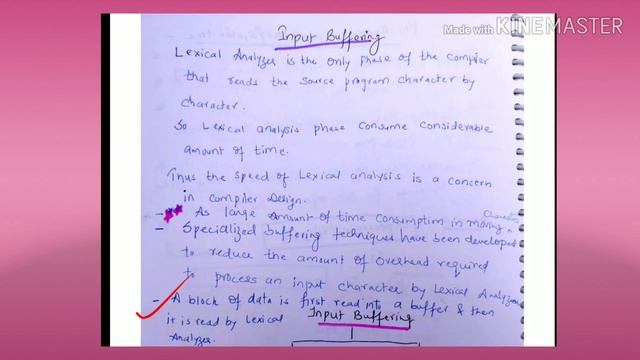 Made with KINEMASTER
Input Buffering
Lexical Analyzer is the only phase of the compiler
that reads the source program character by
character.
So Lexical analysis phase consume considerable
amount of time.
Thus the speed of Lexical analysis is a concern
in compiler Design.
- As large amount of time consumption in moving
- Specialized buffering techniques have been developed
to reduce the amount of overhead required
to process an input character by Lexical Analyzer
- A block of data is first read into a buffer & then
it is read by Lexical
Analyzer.
Input Buffering